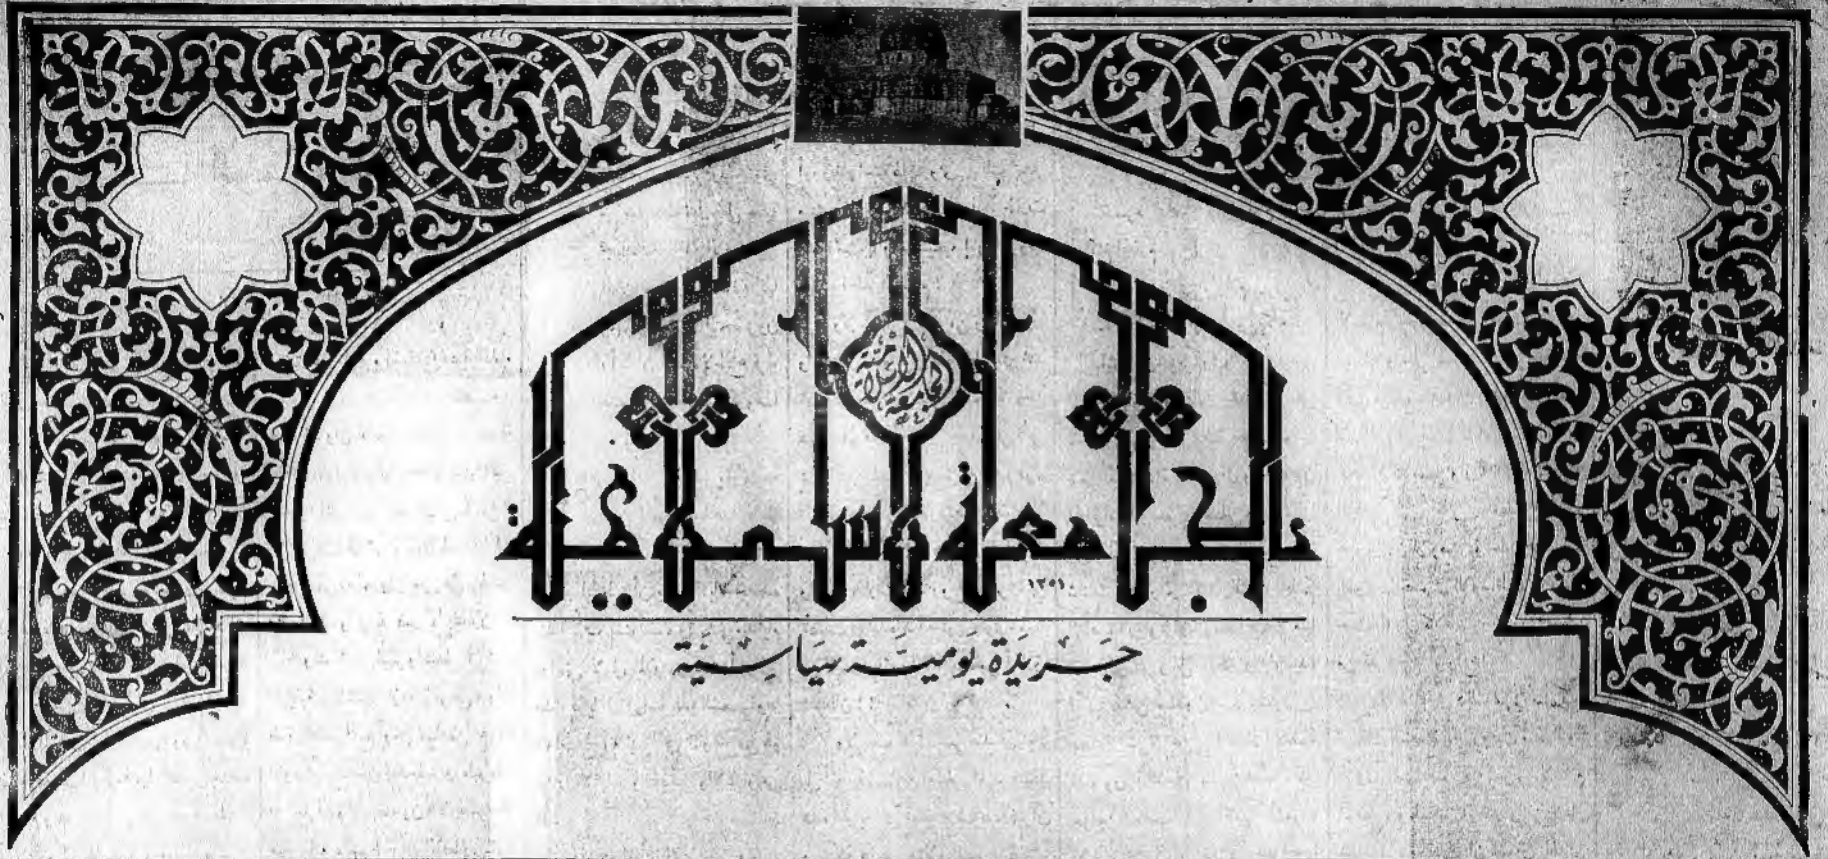 الجامعة الإسلامية
الجامعة الاسلامية
١٣٥١
جَريدَة يَوميَّة سِيَاسِيَّة